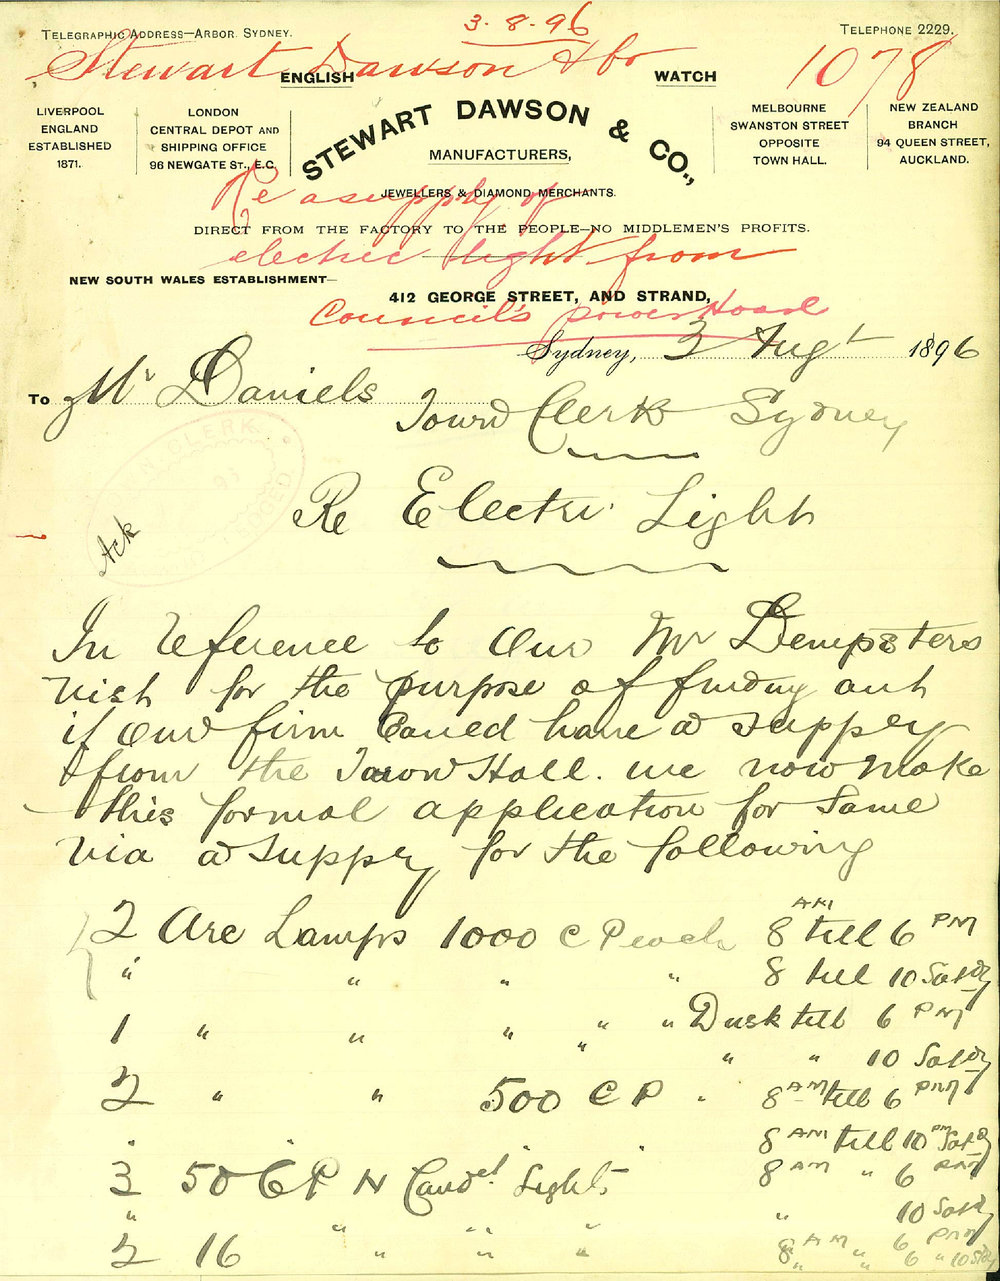 3.8.96
TELEGRAPHIC ADDRESS—ARBOR. SYDNEY.
TELEPHONE 2229.
Stewart Dawson & Co
1078
ENGLISH WATCH
LIVERPOOL
ENGLAND
ESTABLISHED
1871.
LONDON
CENTRAL DEPOT AND
SHIPPING OFFICE
96 NEWGATE ST., E.C.
STEWART DAWSON & CO.,
MANUFACTURERS,
JEWELLERS & DIAMOND MERCHANTS.
MELBOURNE
SWANSTON STREET
OPPOSITE
TOWN HALL.
NEW ZEALAND
BRANCH
94 QUEEN STREET,
AUCKLAND.
Re a supply of
DIRECT FROM THE FACTORY TO THE PEOPLE—NO MIDDLEMEN'S PROFITS.
electric light from
NEW SOUTH WALES ESTABLISHMENT—
412 GEORGE STREET, AND STRAND,
Council's power
Sydney, 3 Augt 1896
To Mr Daniels
Town Clerk Sydney
TOWN CLERK
Ack
Re Electric Light
In reference to our Mr Dempsters
visit for the purpose of finding out
if our firm could have a supply
from the Town Hall. we now make
this formal application for same
via a supply for the following
2 Arc Lamps 1000 C P each 8 AM till 6 PM
" " " " 8 till 10 Satdy
1 " " " " " Dusk till 6 PM
" " " 10 Satdy
2 " " 500 C P " 8 AM till 6 PM
" " 8 AM till 10 PM Satdy
3 50 C P N Candel Light 8 AM " 6 PM
" " 10 Satdy
2 16 " " " " " 8 AM " 6 PM
" " 6 " 10 Satdy